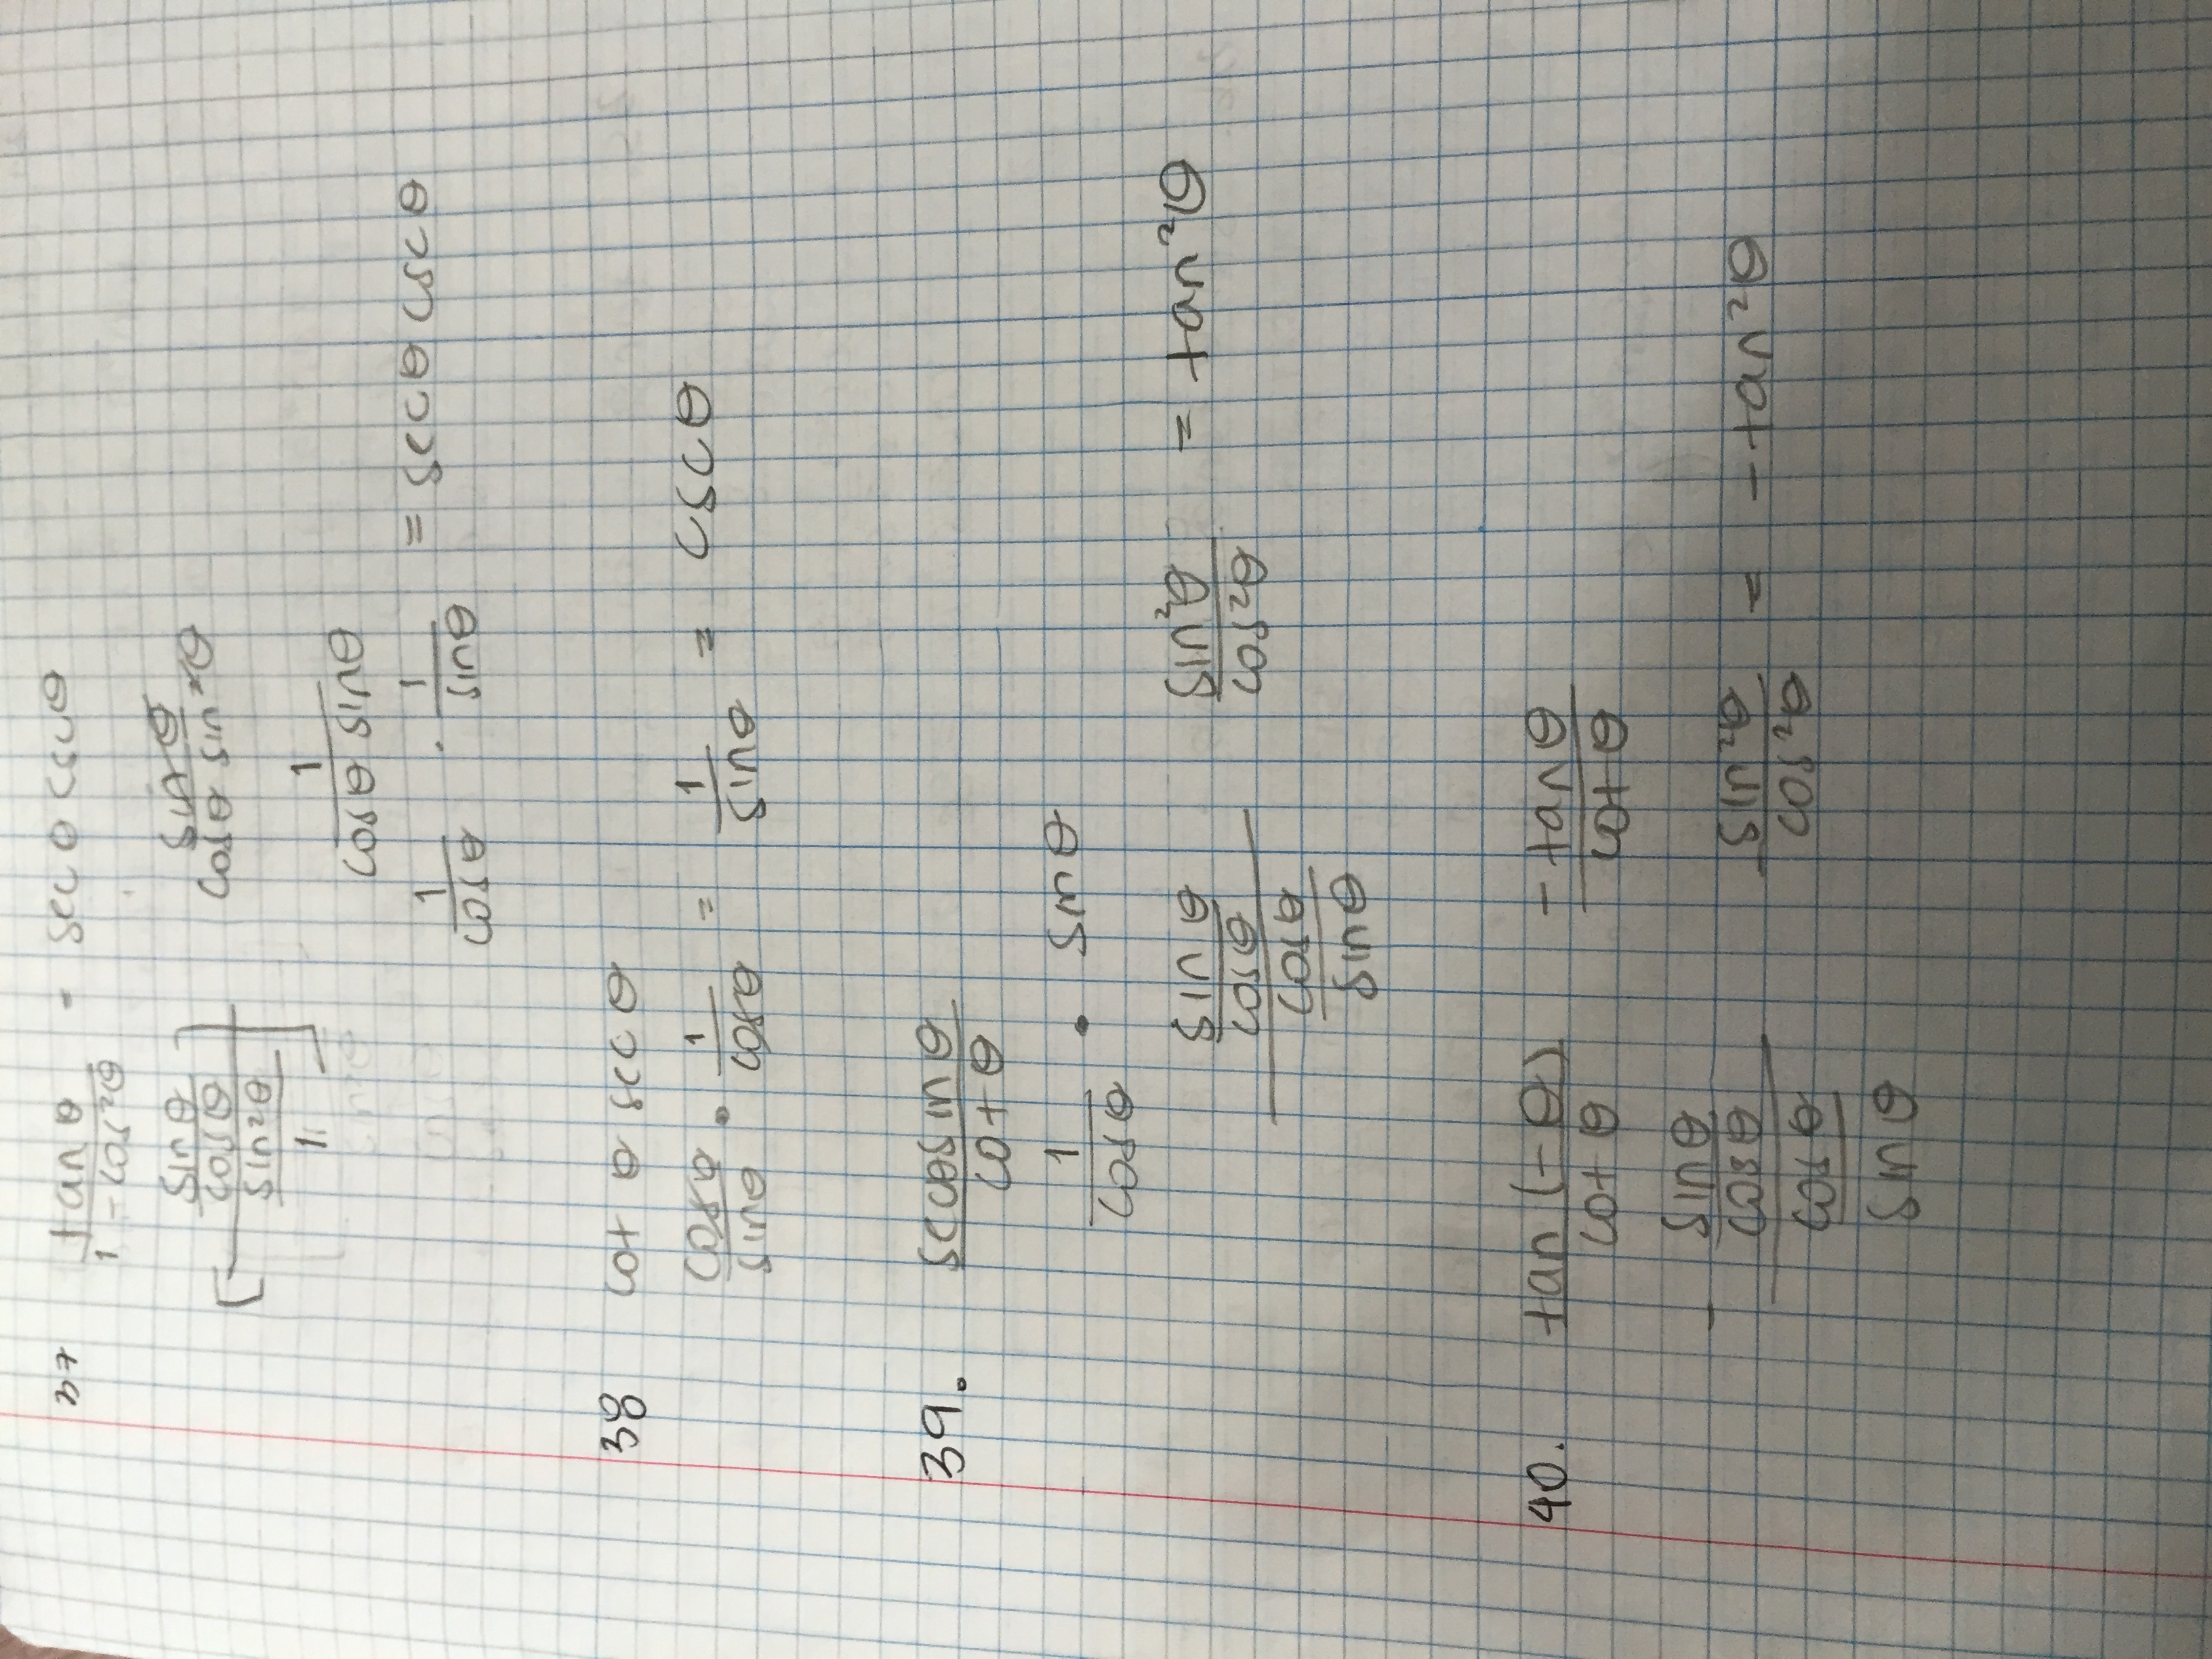 37 tan θ / 1 - cos²θ = sec θ csc θ
[ sin θ / cos θ / sin²θ / 1 ] sin θ / cos θ sin²θ
1 / cos θ sin θ
1 / cos θ · 1 / sin θ = sec θ csc θ
38 cot θ sec θ
cos θ / sin θ · 1 / cos θ = 1 / sin θ = csc θ
39. sec θ sin θ / cot θ
1 / cos θ · sin θ
sin θ / cos θ / cos θ / sin θ sin²θ / cos²θ = tan²θ
40. tan (-θ) / cot θ - tan θ / cot θ
- sin θ / cos θ / cos θ / sin θ - sin²θ / cos²θ = - tan²θ